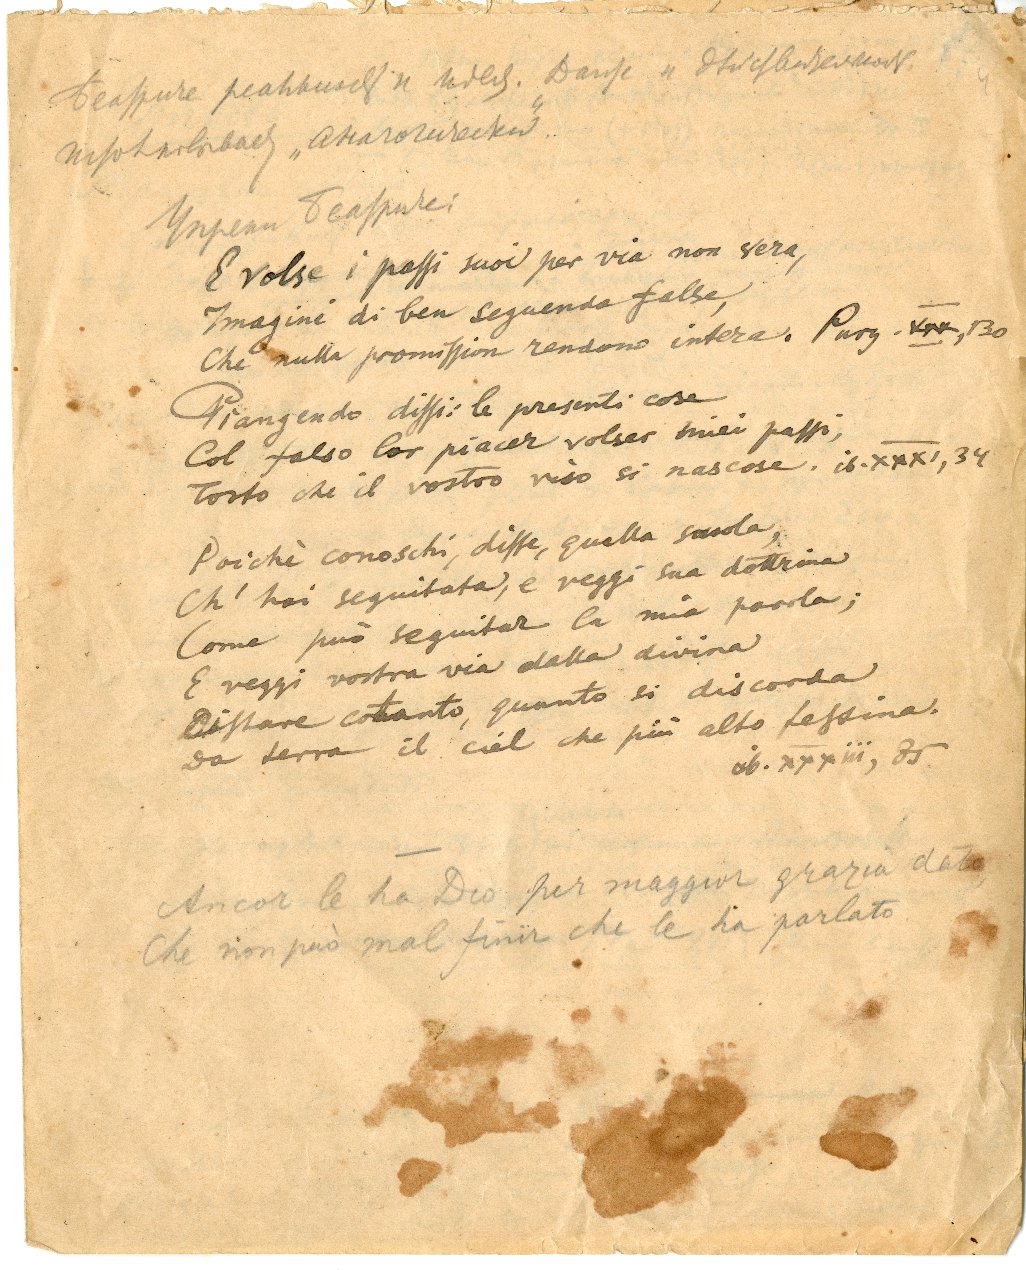 Беатриче и Данте и
„анагогически"
Упреки Беатриче:
E volse i passi suoi per via non vera,
Imagini di ben seguendo false,
Che nulla promission rendono intera. Purg. XXX, 130
Piangendo dissi: le presenti cose
Col falso lor piacer volser miei passi,
Tosto che il vostro viso si nascose. ib. XXXI, 34
Poichè conoschi, disse, quella scuola,
Ch' hai seguitata, e veggi sua dottrina
Come può seguitar la mia parola;
E veggi vostra via dalla divina
Distare cotanto, quanto si discorda
Da terra il ciel che più alto festina.
ib. XXXiii, 85
Ancor le ha Dio per maggior grazia dato
Che non può mal finir che le ha parlato